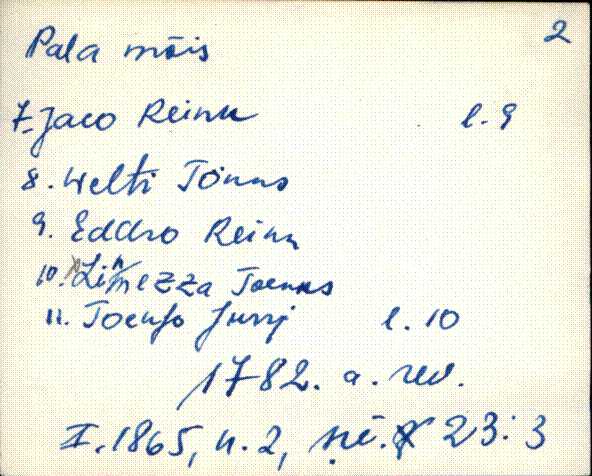 2
Pala mõis
7. Jaco Reinu l. 9
8. Welti Tönnus
9. Eddro Reinu
10. Linnezza Toennus
11. Toenso Jurrj l. 10
1782. a. rev.
I. 1865, n. 2, 23:3